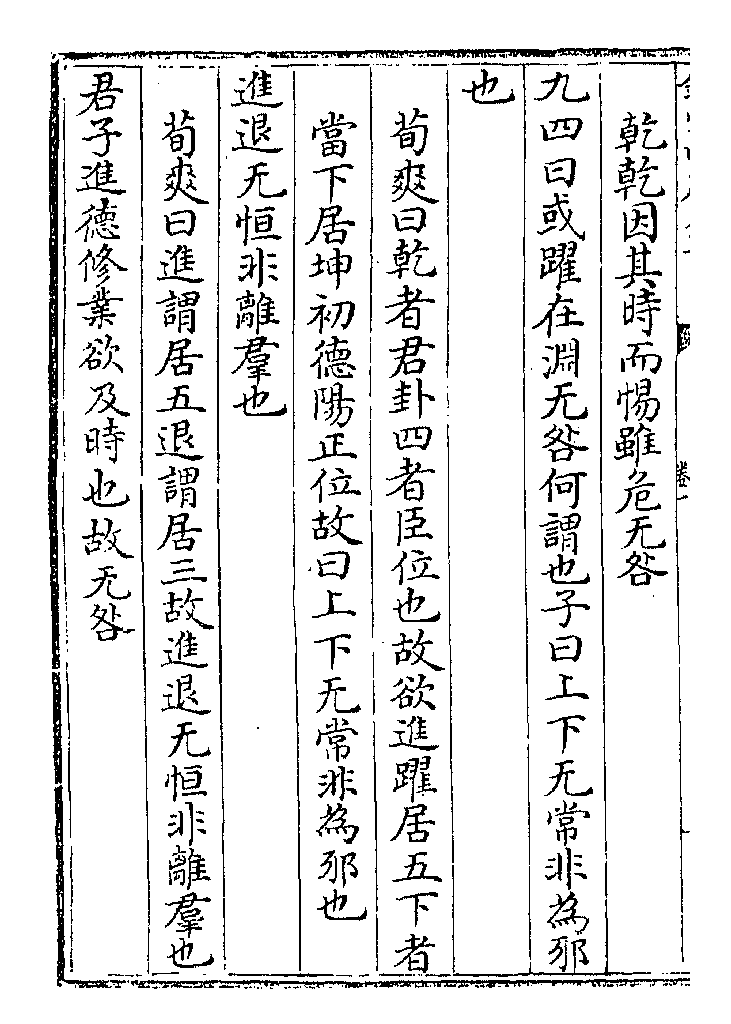 乾乾因其時而惕雖危无咎
九四曰或躍在淵无咎何謂也子曰上下无常非為邪
也
荀爽曰乾者君卦四者臣位也故欲進躍居五下者
當下居坤初德陽正位故曰上下无常非為邪也
進退无恒非離羣也
荀爽曰進謂居五退謂居三故進退无恒非離羣也
君子進德修業欲及時也故无咎